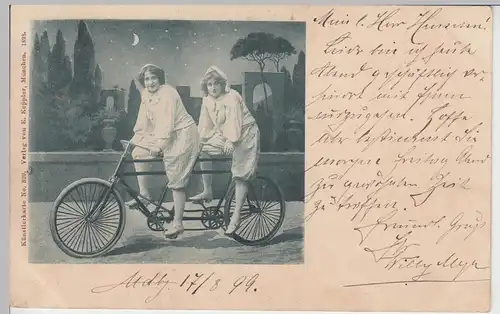 Künstlerkarte No. 802. Verlag von E. Keppler, München. 1898.
Mein l. Herr
Leider bin ich heute
Abend geschäftlich ver-
hindert mit Ihnen
auszugehen. Hoffe
aber bestimmt Sie
morgen Freitag Abend
zur gewohnten Zeit
zu treffen.
Freundl. Gruß
Willy Meyer
Mdbg. 17/8 99.